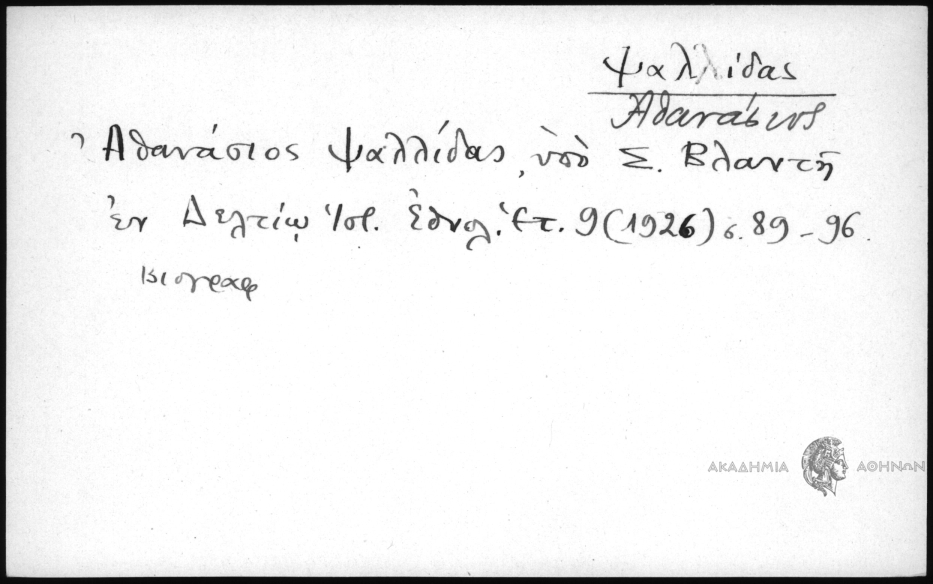 Ψαλλίδας
Ἀθανάσιος
Ἀθανάσιος Ψαλλίδας, ὑπὸ Σ. Βλαντῆ
ἐν Δελτίῳ Ἱστ. Ἐθνολ. Ἑτ. 9 (1926) σ. 89-96.
Βιογραφ
ΑΚΑΔΗΜΙΑ ΑΘΗΝΩΝ